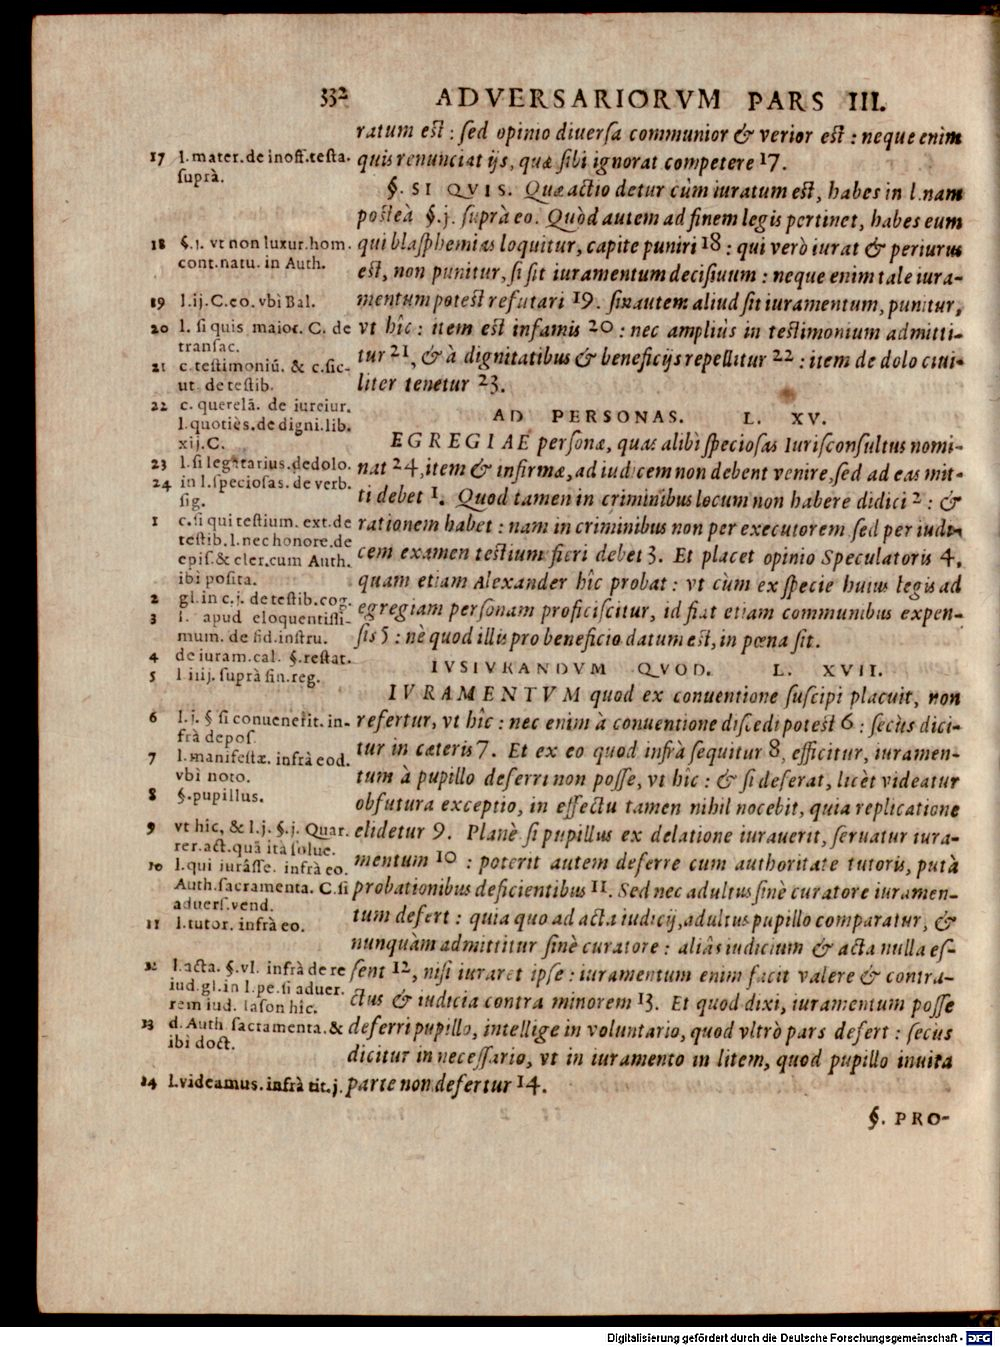 332 ADVERSARIORVM PARS III.
ratum est : sed opinio diuersa communior & verior est : neque enim
quis renunciat ijs, quæ sibi ignorat competere 17.
§. SI QVIS. Quæ actio detur cùm iuratum est, habes in l. nam
posteà §. j. suprà eo. Quòd autem ad finem legis pertinet, habes eum
qui blasphemias loquitur, capite puniri 18 : qui verò iurat & periurus
est, non punitur, si sit iuramentum decisiuum : neque enim tale iura-
mentum potest refutari 19. sin autem aliud sit iuramentum, punitur,
vt hîc : item est infamis 20 : nec ampliùs in testimonium admitti-
tur 21, & à dignitatibus & beneficijs repellitur 22 : item de dolo ciui-
liter tenetur 23.
AD PERSONAS. L. XV.
EGREGIAE personæ, quas alibi speciosas Iurisconsultus nomi-
nat 24, item & infirmæ, ad iudicem non debent venire, sed ad eas mit-
ti debet 1. Quod tamen in criminibus locum non habere didici 2 : &
rationem habet : nam in criminibus non per executorem sed per iudi-
cem examen testium fieri debet 3. Et placet opinio Speculatoris 4,
quam etiam Alexander hîc probat : vt cùm ex specie huius legis ad
egregiam personam proficiscitur, id fiat etiam communibus expen-
sis 5 : nè quod illis pro beneficio datum est, in pœna sit.
IVSIVRANDVM QVOD. L. XVII.
IVRAMENTVM quod ex conuentione suscipi placuit, non
refertur, vt hîc : nec enim à conuentione discedi potest 6 : secùs dici-
tur in cæteris 7. Et ex eo quod infrà sequitur 8, efficitur, iuramen-
tum à pupillo deferri non posse, vt hic : & si deferat, licèt videatur
obfutura exceptio, in effectu tamen nihil nocebit, quia replicatione
elidetur 9. Planè si pupillus ex delatione iurauerit, seruatur iura-
mentum 10 : poterit autem deferre cum authoritate tutoris, putà
probationibus deficientibus 11. Sed nec adultus sinè curatore iuramen-
tum defert : quia quo ad acta iudicij, adultus pupillo comparatur, &
nunquàm admittitur sinè curatore : aliâs iudicium & acta nulla es-
sent 12, nisi iuraret ipse : iuramentum enim facit valere & contra-
ctus & iudicia contra minorem 13. Et quod dixi, iuramentum posse
deferri pupillo, intellige in voluntario, quod vltrò pars defert : secus
dicitur in necessario, vt in iuramento in litem, quod pupillo inuita
parte non defertur 14.
§. PRO-
17 l. mater. de inoff. testa.
suprà.
18 §. 1. vt non luxur. hom.
cont. natu. in Auth.
19 l. ij. C. eo. vbi Bal.
20 l. si quis maior. C. de
transac.
21 c. testimoniũ. & c. sic-
ut. de testib.
22 c. querelã. de iureiur.
l. quoties. de digni. lib.
xij. C.
23 l. si legatarius. de dolo.
24 in l. speciosas. de verb.
sig.
1 c. si qui testium. ext. de
testib. l. nec honore. de
epis. & cler. cum Auth.
ibi posita.
2 gl. in c. j. de testib. cog.
3 §. apud eloquentissi-
mum. de fid. instru.
4 de iuram. cal. §. restat.
5 l. iiij. suprà fin. reg.
6 l. j. § si conuenerit. in-
frà depos.
7 l. manifestæ. infrà eod.
vbi noto.
8 §. pupillus.
9 vt hic, & l. j. §. j. Quar.
rer. act. quã ità solue.
10 l. qui iurâsse. infrà eo.
Auth. sacramenta. C. si
aduers. vend.
11 l. tutor. infrà eo.
12 l. acta. §. vl. infrà de re
iud. gl. in l. pe. si aduer.
rem iud. Iason hîc.
13 d. Auth. sacramenta. &
ibi doct.
14 l. videamus. infrà tit. j.
Digitalisierung gefördert durch die Deutsche Forschungsgemeinschaft - DFG